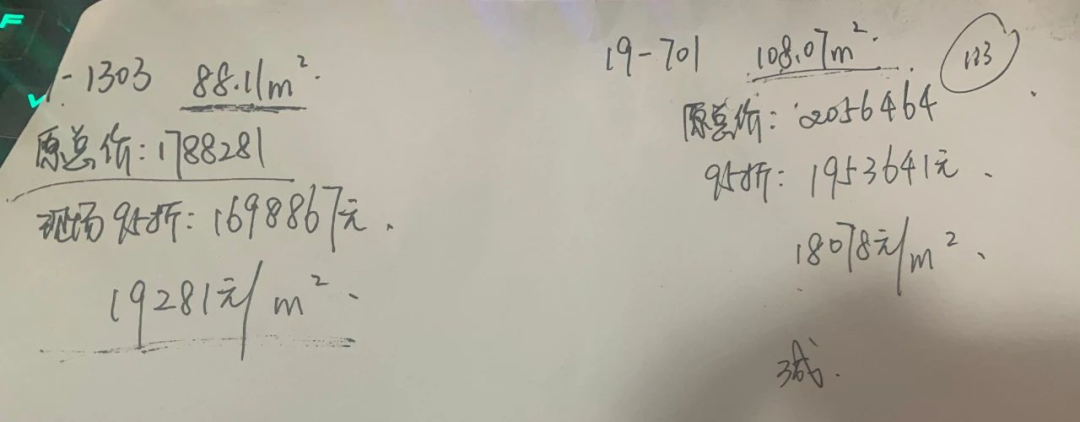 1-1303 88.11m²
原总价:1788281
现场95折:1698867元.
19281元/m².
19-701 108.07m².
123
原总价:2056464
95折:1953641元、
18078元/m²、
3成.